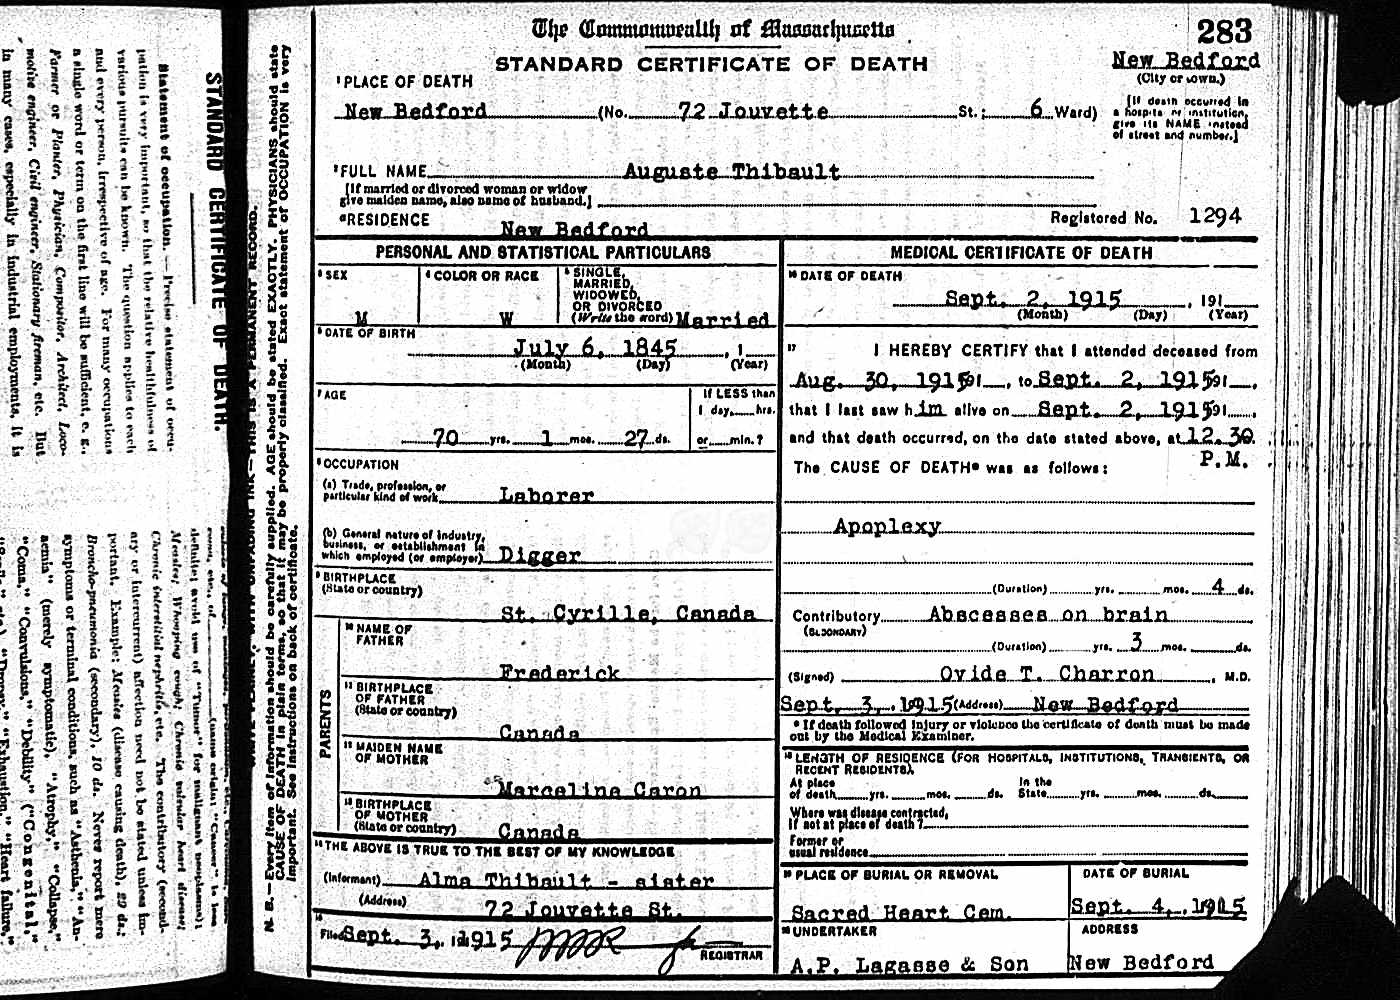 The Commonwealth of Massachusetts
283
STANDARD CERTIFICATE OF DEATH
New Bedford
(City or town.)
1 PLACE OF DEATH
New Bedford (No. 72 Jouvette St.; 6 Ward)
[If death occurred in
a hospital or institution,
give its NAME instead
of street and number.]
2 FULL NAME Auguste Thibault
[If married or divorced woman or widow
give maiden name, also name of husband.]
RESIDENCE New Bedford
Registered No. 1294
PERSONAL AND STATISTICAL PARTICULARS
3 SEX
M
4 COLOR OR RACE
W
5 SINGLE,
MARRIED,
WIDOWED,
OR DIVORCED
(Write the word) Married
6 DATE OF BIRTH
July 6, 1845 , 1
(Month) (Day) (Year)
7 AGE
If LESS than
1 day, hrs.
70 yrs. 1 mos. 27 ds. or min.?
8 OCCUPATION
(a) Trade, profession, or
particular kind of work Laborer
(b) General nature of industry,
business, or establishment in
which employed (or employer) Digger
9 BIRTHPLACE
(State or country)
St. Cyrille, Canada
PARENTS
10 NAME OF
FATHER
Frederick
11 BIRTHPLACE
OF FATHER
(State or country)
Canada
12 MAIDEN NAME
OF MOTHER
Marcelina Caron
13 BIRTHPLACE
OF MOTHER
(State or country) Canada
14 THE ABOVE IS TRUE TO THE BEST OF MY KNOWLEDGE
(Informant) Alma Thibault - sister
(Address) 72 Jouvette St.
15
Filed Sept. 3, 1915
REGISTRAR
MEDICAL CERTIFICATE OF DEATH
16 DATE OF DEATH
Sept. 2, 1915 , 191
(Month) (Day) (Year)
17 I HEREBY CERTIFY that I attended deceased from
Aug. 30, 1915 191 , to Sept. 2, 1915 191 ,
that I last saw him alive on Sept. 2, 1915 191 ,
and that death occurred, on the date stated above, at 12.30
P.M.
The CAUSE OF DEATH* was as follows:
Apoplexy
(Duration) yrs. mos. 4 ds.
Contributory Abscesses on brain
(SECONDARY)
(Duration) yrs. 3 mos. ds.
(Signed) Ovide T. Charron , M.D.
Sept. 3, 1915 (Address) New Bedford
* If death followed injury or violence the certificate of death must be made
out by the Medical Examiner.
18 LENGTH OF RESIDENCE (FOR HOSPITALS, INSTITUTIONS, TRANSIENTS, OR
RECENT RESIDENTS).
At place In the
of death yrs. mos. ds. State yrs. mos. ds.
Where was disease contracted,
If not at place of death?
Former or
usual residence
19 PLACE OF BURIAL OR REMOVAL
Sacred Heart Cem.
DATE OF BURIAL
Sept. 4, 1915
20 UNDERTAKER
A.P. Lagasse & Son
ADDRESS
New Bedford
N. B.—Every item of information should be carefully supplied. AGE should be stated EXACTLY. PHYSICIANS should state
CAUSE OF DEATH in plain terms, so that it may be properly classified. Exact statement of OCCUPATION is very
important. See instructions on back of certificate.
STANDARD CERTIFICATE OF DEATH.
Statement of occupation. — Precise statement of occu-
pation is very important, so that the relative healthfulness of
various pursuits can be known. The question applies to each
and every person, irrespective of age. For many occupations
a single word or term on the first line will be sufficient, e. g.,
Farmer or Planter, Physician, Compositor, Architect, Loco-
motive engineer, Civil engineer, Stationary fireman, etc. But
in many cases, especially in industrial employments, it is
definite; avoid use of "Tumor" for malignant neoplasms)
Measles; Whooping cough; Chronic valvular heart disease;
Chronic interstitial nephritis, etc. The contributory (second-
ary or intercurrent) affection need not be stated unless im-
portant. Example: Measles (disease causing death), 29 ds.;
Broncho-pneumonia (secondary), 10 ds. Never report mere
symptoms or terminal conditions, such as "Asthenia," "An-
aemia" (merely symptomatic), "Atrophy," "Collapse,"
"Coma," "Convulsions," "Debility" ("Congenital,"